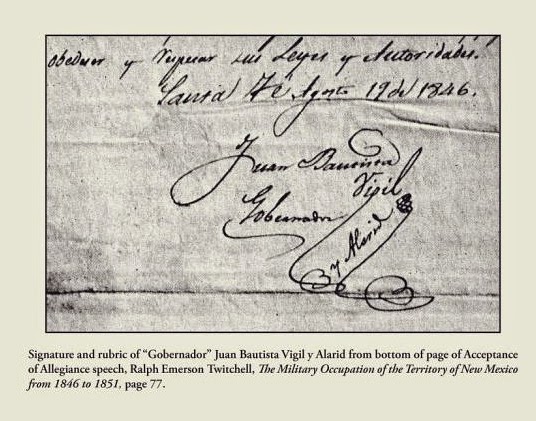 obedecer y respetar sus Leyes y Autoridades.
Santa Fé Agosto 19 de 1846.
Juan Bautista
Vigil
Gobernador
y Alarid
Signature and rubric of “Gobernador” Juan Bautista Vigil y Alarid from bottom of page of Acceptance
of Allegiance speech, Ralph Emerson Twitchell, The Military Occupation of the Territory of New Mexico
from 1846 to 1851, page 77.